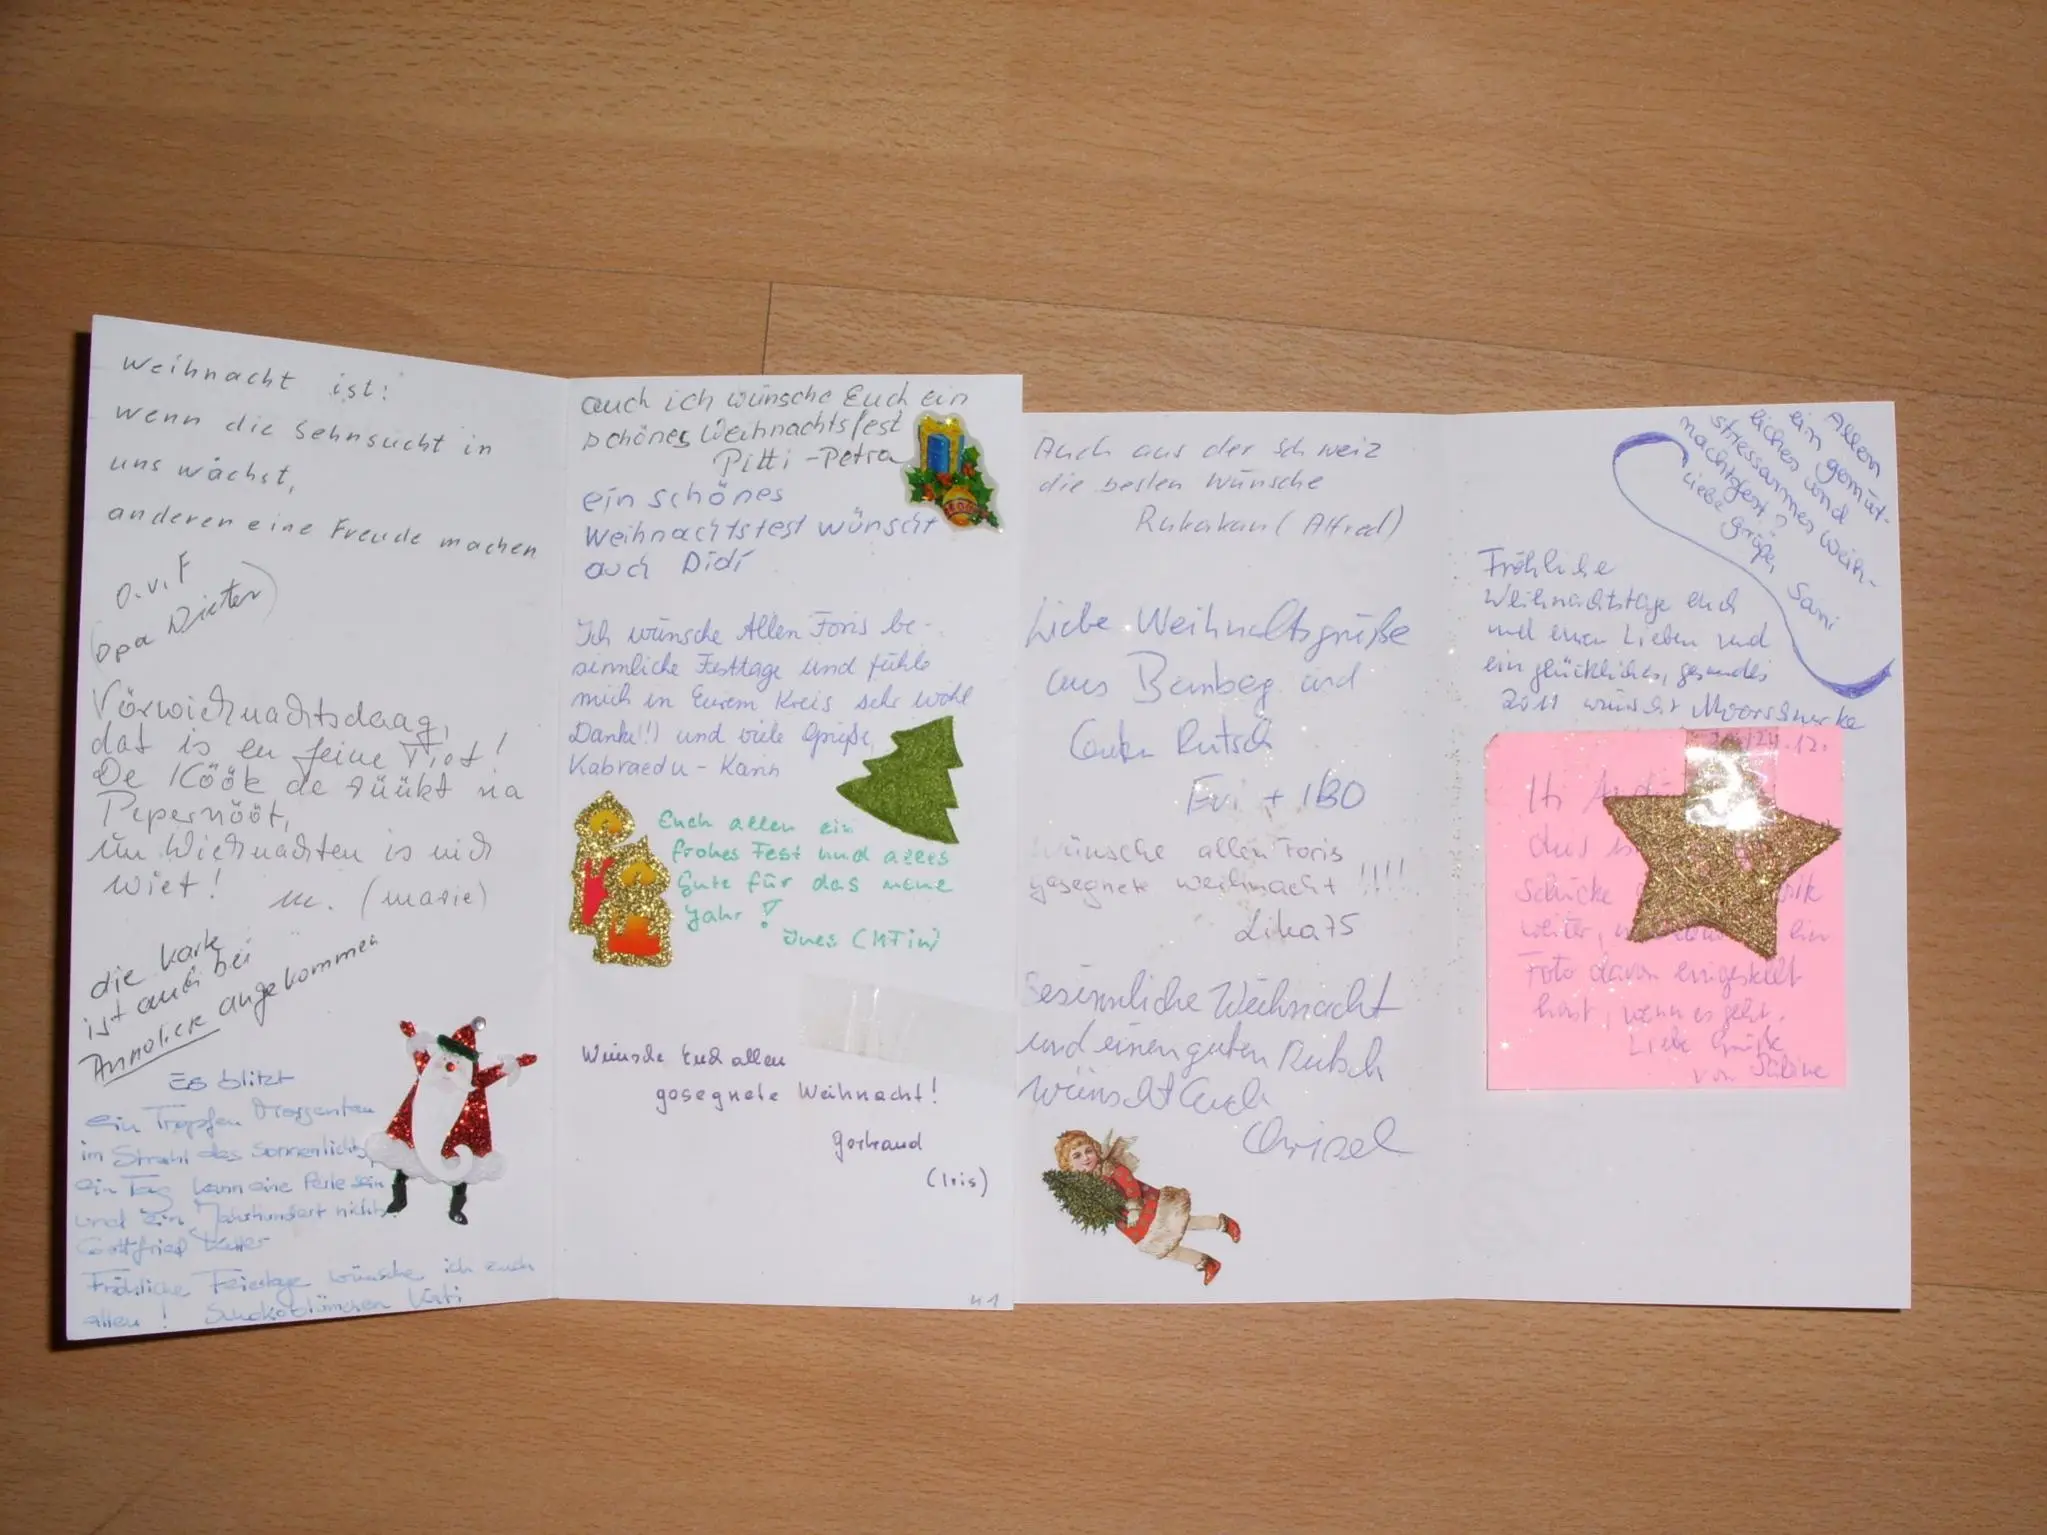 Weihnacht ist:
wenn die Sehnsucht in
uns wächst,
anderen eine Freude machen
o.v.F
(opa Dieter)
Vörwiehnachtsdaag,
dat is en feine Tiet!
De Köök de rüükt na
Pepernööt,
un Wiehnachten is nich
wiet! m. (marie)
die Karte
ist auch bei
Annoliese angekommen
Es blitzt
ein Tropfen Morgentau
im Strahl des Sonnenlichts,
ein Tag kann eine Perle sein
und ein Jahrhundert nichts.
Gottfried Keller
Fröhliche Feiertage wünsche ich euch
allen! Schokoblümchen Kati
auch ich wünsche Euch ein
schönes Weihnachtsfest
Pitti - Petra
ein schönes
Weihnachtsfest wünscht
auch Didi
Ich wünsche Allen Foris be-
sinnliche Festtage und fühle
mich in Eurem Kreis sehr wohl
Danke!!) und viele Grüße,
Kabraedu - Karin
Euch allen ein
frohes Fest und alles
Gute für das neue
Jahr!
Ines (MTin)
Wünsche Euch allen
gesegnete Weihnacht!
Gertraud
(Iris)
41
Auch aus der Schweiz
die besten Wünsche
Rukakan (Alfred)
Liebe Weihnachtsgrüße
aus Bamberg und
Guten Rutsch
Evi + IBO
wünsche allen Foris
gesegnete Weihnacht !!!!
Lika75
Besinnliche Weihnacht
und einen guten Rutsch
wünscht Euch
Chrisel
Allen
ein gemüt-
liches und
stressarmes Weih-
nachtsfest?
Liebe Grüße,
Sani
Fröhliche
Weihnachtstage euch
und euren Lieben und
ein glückliches, gesundes
2011 wünscht Moorschnucke
12.
Hi
schicke
weiter, ein
Foto davon eingestellt
hast, wenn es geht.
Liebe Grüße
von Sabine